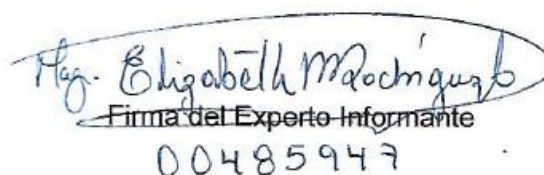 Mag. Elizabeth M Rodríguez
Firma del Experto Informante
00485947